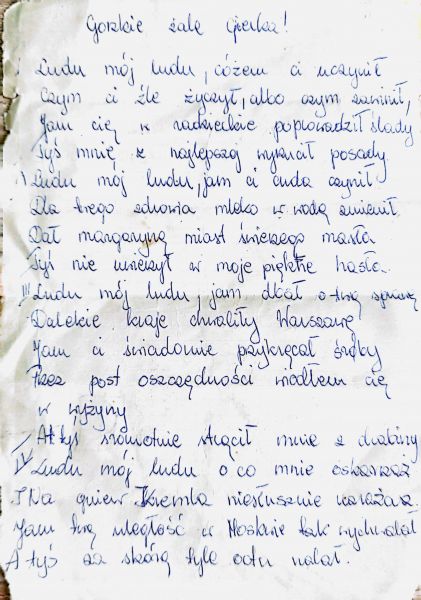 Gorzkie żale Gierka!
I Ludu mój ludu, cóżem ci uczynił
Czym ci źle życzył, albo czym zawinił,
Jam cię w radzieckie poprowadził ślady
Tyś mnie z najlepszej wyrzucił posady.
Ludu mój ludu, jam ci cuda czynił
Dla twego zdrowia mleko w wodę zmienił
Dał margarynę miast świeżego masła
Tyś nie wierzył w moje piękne hasła.
III Ludu mój ludu, jam dbał o twą sprawę
Dalekie kraje chwaliły Warszawę
Jam ci świadomie przykręcał śruby
Przez post oszczędności wiodłem cię
w wyżyny
A tyś sromotnie strącił mnie z drabiny
IV Ludu mój ludu o co mnie oskarżasz
I Na gniew Kremla niesłusznie narażasz
Jam twą uległość w Moskwie tak wychwalał
A tyś za skórę tyle octu nalał.